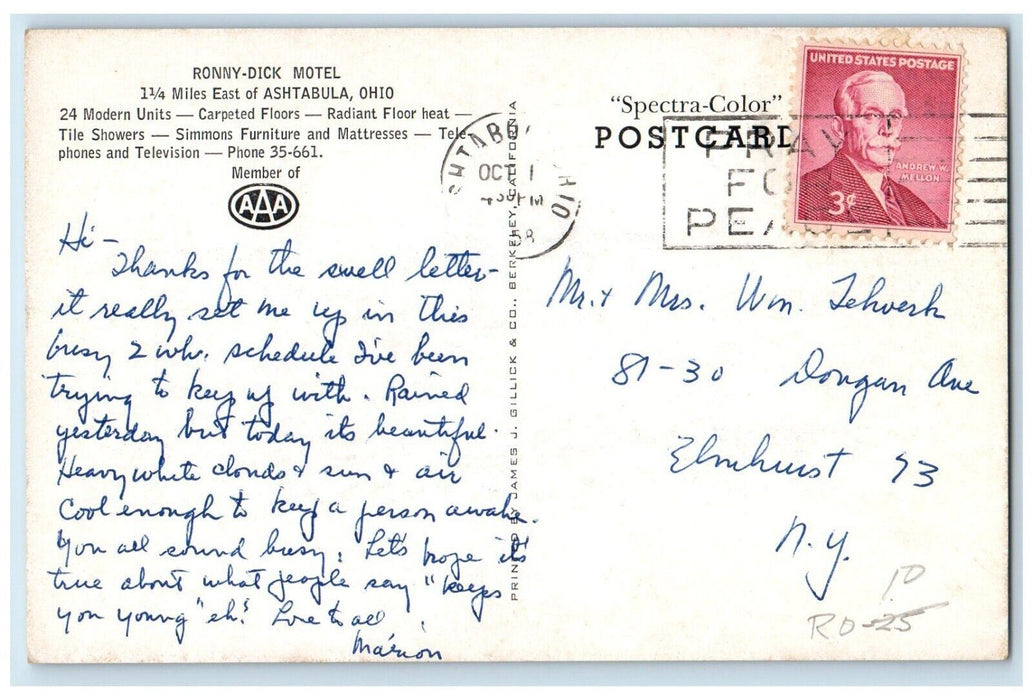 RONNY-DICK MOTEL
1¼ Miles East of ASHTABULA, OHIO
24 Modern Units — Carpeted Floors — Radiant Floor heat —
Tile Showers — Simmons Furniture and Mattresses — Tele-
phones and Television — Phone 35-661.
Member of
AAA
Hi —
Thanks for the swell letter-
it really set me up in this
busy 2 wk. schedule I've been
trying to keep up with. Rained
yesterday but today its beautiful.
Heavy white clouds & sun & air
cool enough to keep a person awake.
You all sound busy. Let's hope it's
true about what people say "keeps
you young" eh? Love to all
Marion
PRINTED BY JAMES J. GILLICK & CO., BERKELEY, CALIFORNIA
"Spectra-Color"
POSTCARD
ASHTABULA OHIO
OCT 1
PM
58
PRAY
FOR
PEACE
UNITED STATES POSTAGE
ANDREW W.
MELLON
3¢
Mr. & Mrs. Wm.
81-30 Dongan Ave
Elmhurst 73
N.Y.
10
RO-25